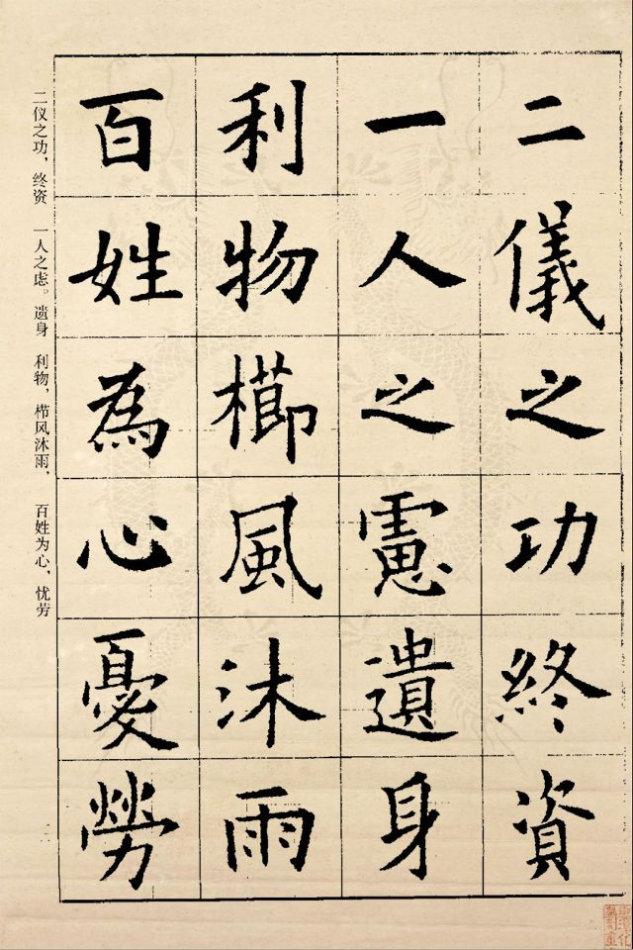 二儀之功終資
一人之慮遺身
利物櫛風沐雨
百姓為心憂勞
二仪之功，终资　一人之虑。遗身　利物，栉风沐雨，　百姓为心，忧劳